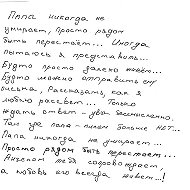 Папа никогда не
умирает, Просто рядом
быть перестаёт... Иногда
пытаюсь я представить...
Будто просто далеко живём...
Будто можно отправить
письма, Рассказать, как я
люблю рассвет... Только
ждать ответ - увы бессмысленно.
Там где папа - писем больше НЕТ...
Папа никогда не умирает...
Просто рядом быть перестаёт...
Ангелом тебя сопровождает,
а любовь его всегда живёт...!